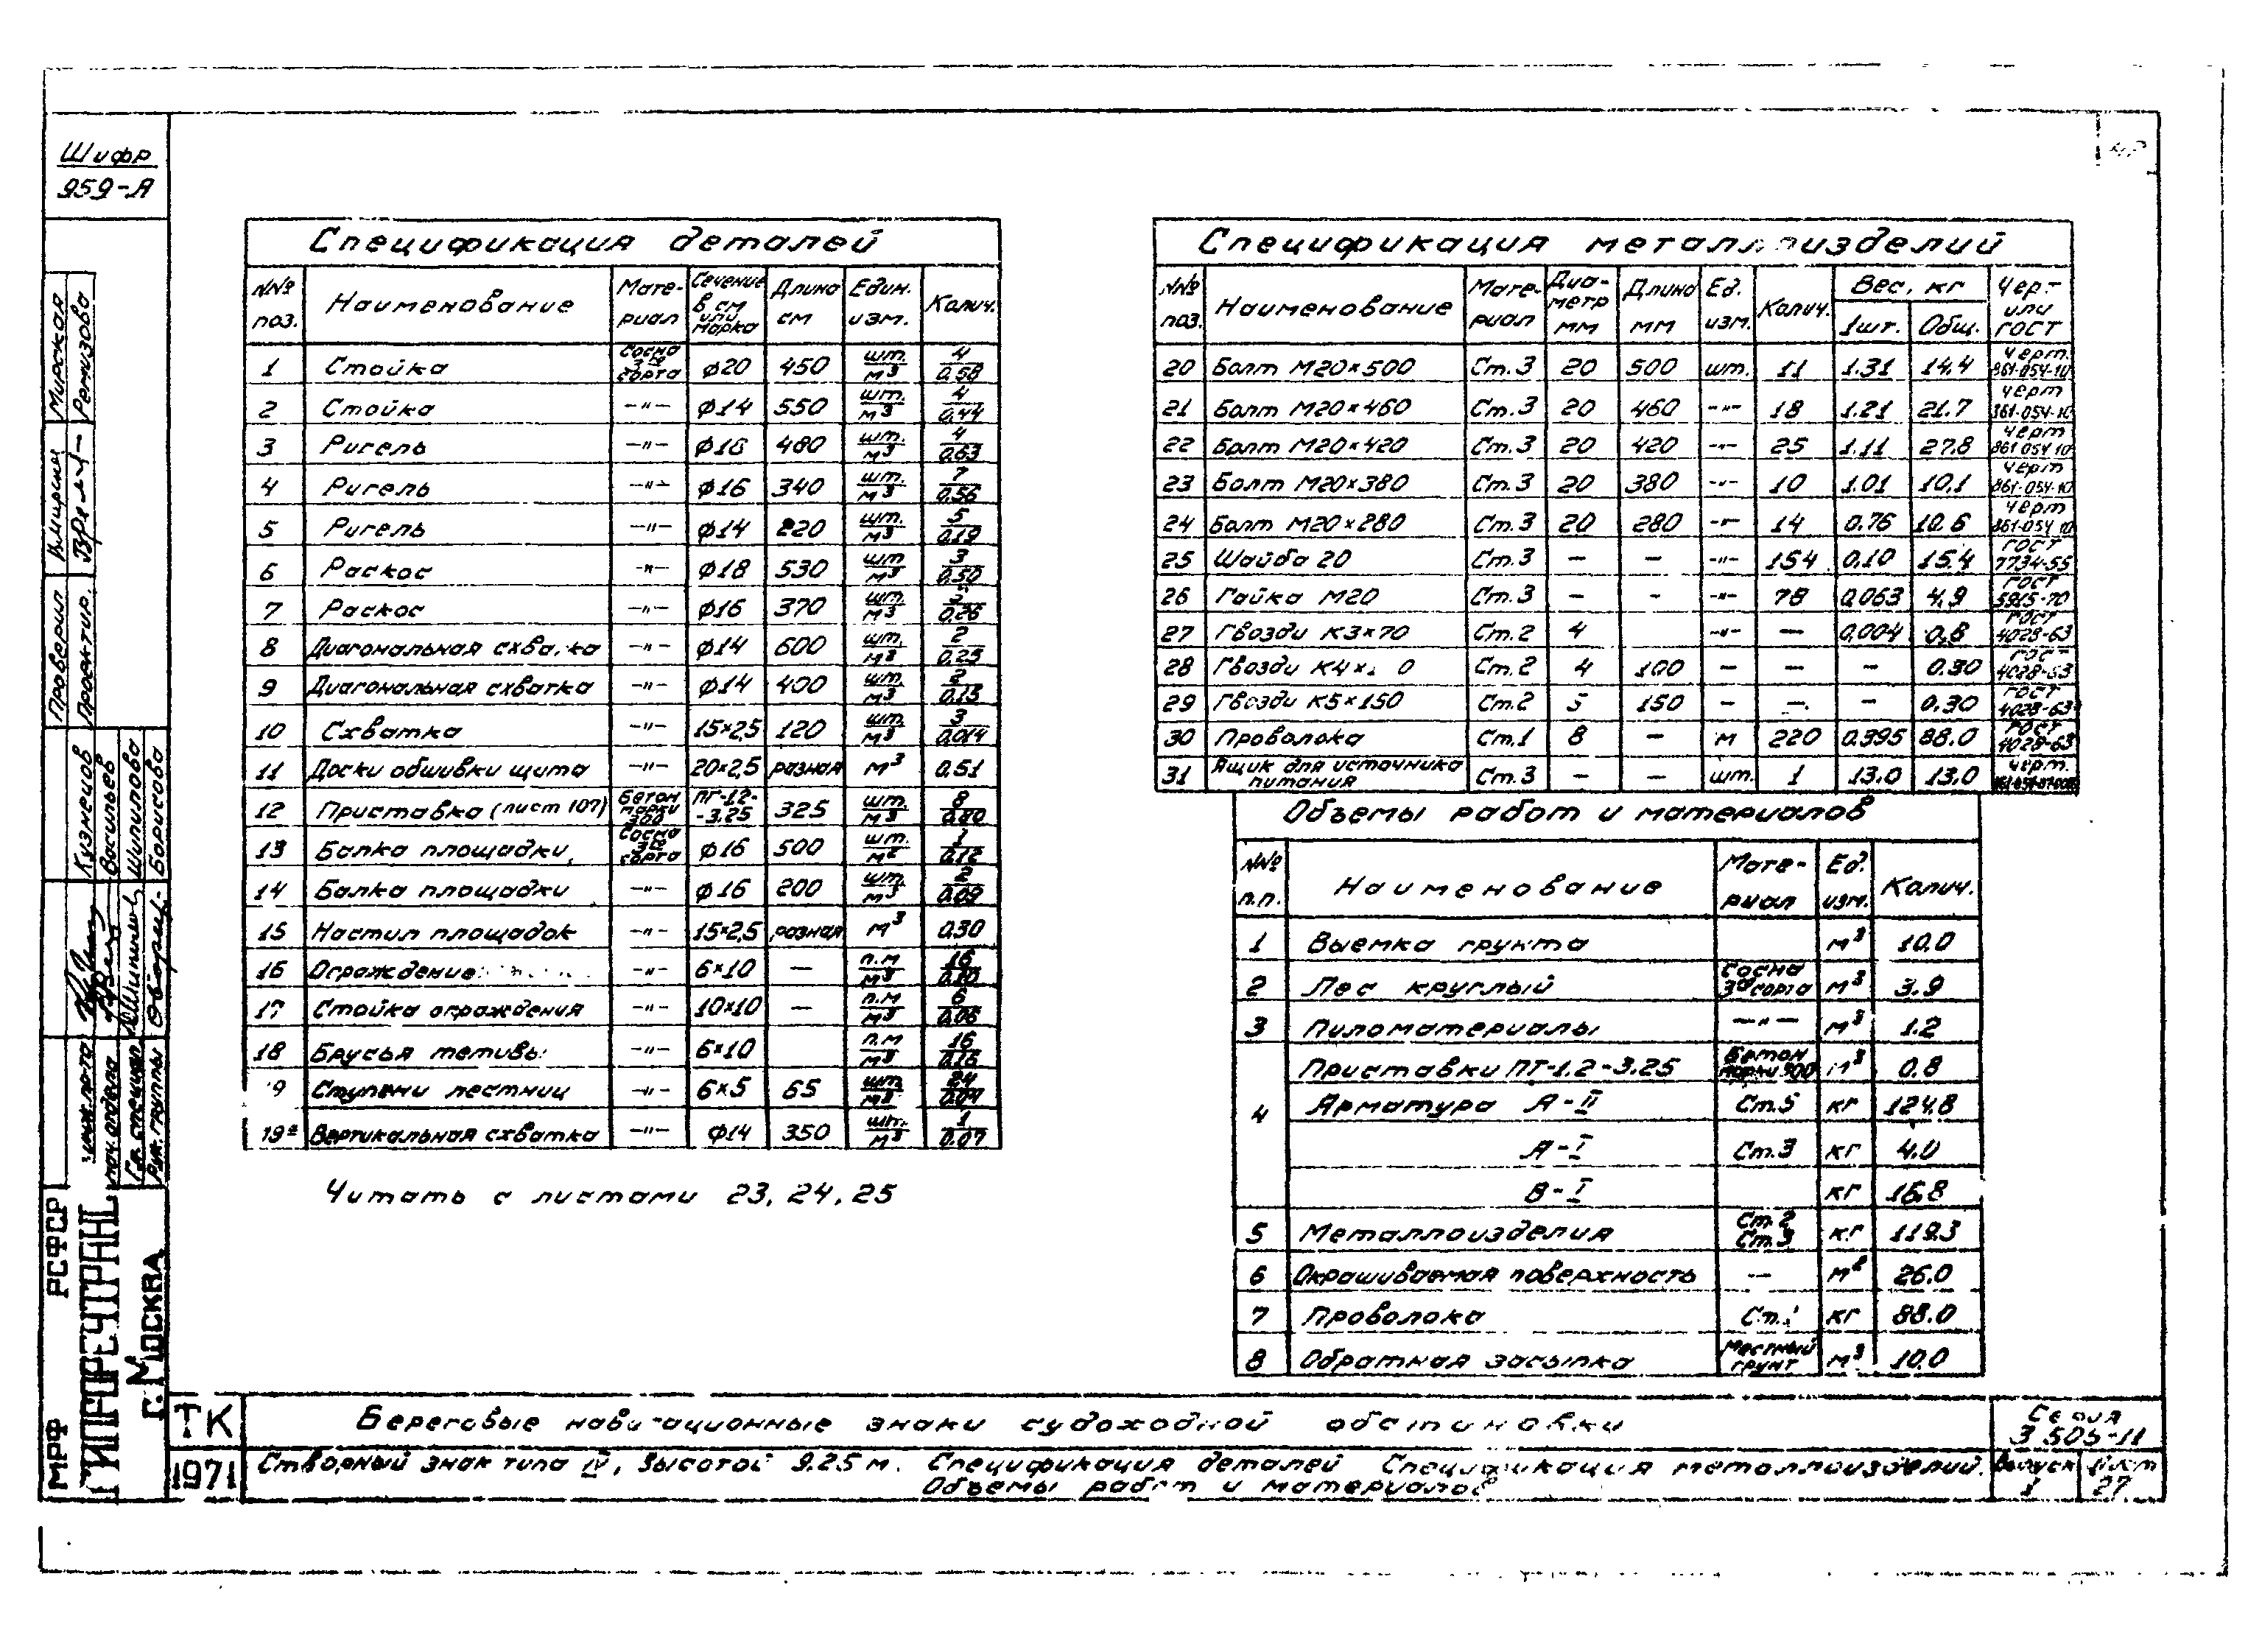 Шифр
959-А
Спецификация деталей
№№ поз. Наименование Материал Сечение в см или марка Длина см Един. изм. Колич.
1 Стойка Сосна 3го сорта ф20 450 шт./м³ 4/0,58
2 Стойка -"- ф14 550 шт./м³ 4/0,44
3 Ригель -"- ф16 480 шт./м³ 4/0,63
4 Ригель -"- ф16 340 шт./м³ 7/0,56
5 Ригель -"- ф14 220 шт./м³ 5/0,19
6 Раскос -"- ф18 530 шт/м³ 3/0,50
7 Раскос -"- ф16 370 шт./м³ /0,26
8 Диагональная схватка -"- ф14 600 шт./м³ 2/0,25
9 Диагональная схватка -"- ф14 400 шт./м³ 2/0,13
10 Схватка -"- 15×2,5 120 шт./м³ 3/0,014
11 Доски обшивки щита -"- 20×2,5 разная м³ 0,51
12 Приставка (лист 107) Бетон марки 300 ПГ-1.2-3.25 325 шт./м³ 8/0,80
13 Балка площадки Сосна 3го сорта ф16 500 шт./м² 1/0,12
14 Балка площадки -"- ф16 200 шт./м³ 2/0,09
15 Настил площадок -"- 15×2,5 разная м³ 0,30
16 Ограждение -"- 6×10 — п.м/м³ 16/0,10
17 Стойка ограждения -"- 10×10 — п.м/м³ 6/0,06
18 Брусья тетивы -"- 6×10 п.м/м³ 16/0,16
9 Ступени лестниц -"- 6×5 65 шт./м³ 24/0,04
19а Вертикальная схватка -"- ф14 350 шт./м³ 1/0,07
Читать с листами 23, 24, 25
Спецификация металлоизделий
№№ поз. Наименование Материал Диаметр мм Длина мм Ед. изм. Колич. Вес, кг 1шт. Общ. Черт. или ГОСТ
20 Болт М20×500 Ст.3 20 500 шт. 11 1.31 14.4 Черт. 861-054-10
21 Болт М20×460 Ст.3 20 460 -"- 18 1.21 21.7 Черт 861-054-10
22 Болт М20×420 Ст.3 20 420 -"- 25 1.11 27.8 Черт 861 054 10
23 Болт М20×380 Ст.3 20 380 -"- 10 1.01 10,1 Черт 861-054-10
24 Болт М20×280 Ст.3 20 280 -"- 14 0.76 10.6 Черт 861-054 10
25 Шайба 20 Ст.3 — — -"- 154 0,10 15.4 ГОСТ 7734-55
26 Гайка М20 Ст.3 — - -"- 78 0,063 4,9 ГОСТ 5915-70
27 Гвозди К3×70 Ст.2 4 -"- — 0,004 0,8 ГОСТ 4028-63
28 Гвозди К4× 0 Ст.2 4 100 — — — 0.30 ГОСТ 4028-63
29 Гвозди К5×150 Ст.2 5 150 — — — 0,30 ГОСТ 4028-63
30 Проволока Ст.1 8 — м 220 0.395 88.0 ГОСТ 4028-63
31 Ящик для источника питания Ст.3 — — шт. 1 13,0 13,0 Черт.
Объемы работ и материалов
№№ п.п. Наименование Материал Ед. изм. Колич.
1 Выемка грунта м³ 10.0
2 Лес круглый Сосна 3го сорта м³ 3.9
3 Пиломатериалы -"- м³ 1.2
4 Приставки ПГ-1.2-3.25 Бетон марки 300 м³ 0.8
Арматура А-II Ст.5 кг 124.8
А-I Ст.3 кг 4.0
В-I кг 16,8
5 Металлоизделия Ст.2 Ст.3 кг 119.3
6 Окрашиваемая поверхность — м² 26.0
7 Проволока Ст.1 кг 88.0
8 Обратная засыпка Местный грунт м³ 10.0
Мирская
Ремизова
Проверил
Проектир.
Кузнецов
Васильев
Шипилова
Борисова
нач. отдела
Гл. специал.
Рук. группы
МРФ РСФСР
ГИПРОРЕЧТРАНС
г. МОСКВА
ТК
1971
Береговые навигационные знаки судоходной обстановки
Створный знак типа IV, высотой 9.25 м. Спецификация деталей Спецификация металлоизделий.
Объемы работ и материалов
Серия
3 505-11
Выпуск 1
Лист 27